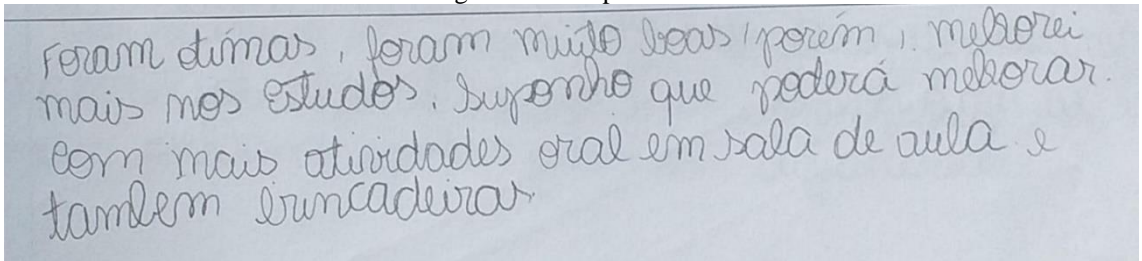 Foram otimas, foram muito boas, porém, melhorei
mais nos estudos. Suponho que poderá melhorar.
com mais atividades oral em sala de aula e
tambem brincadeiras